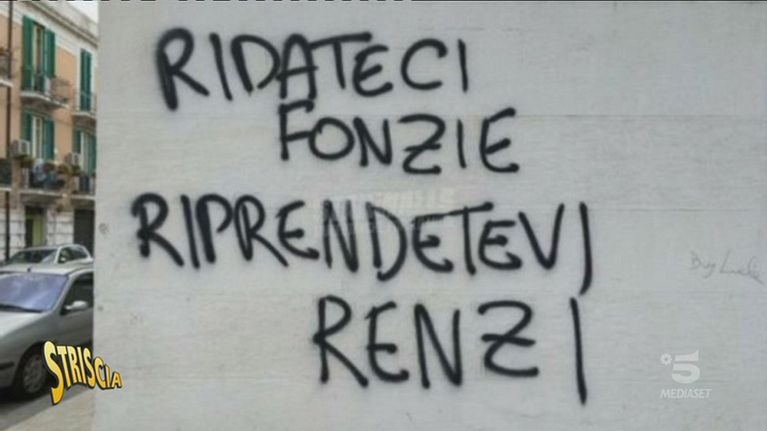 RIDATECI
FONZIE
RIPRENDETEVI
RENZI
STRISCIA
5
MEDIASET